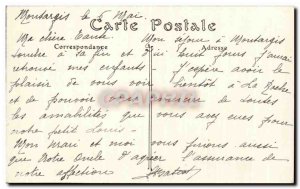 Montargis le 5 Mai
Carte Postale
Ma chère Tante Mon séjour à Montargis
Correspondance Adresse
touche à sa fin et j'ai huit jours j'aurai
retrouvé mes enfants J'espère avoir le
plaisir de vous voir bientôt à La
et de pouvoir vous remercier de toutes
les amabilités que vous avez eues pour
notre petit Louis.
Mon Mari et moi vous prions ainsi
que Notre Oncle d'agréer l'assurance de
notre affection